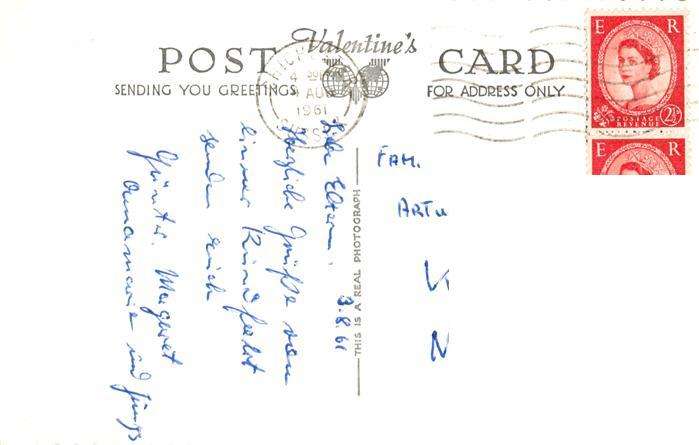 POST Valentine's CARD
SENDING YOU GREETINGS FOR ADDRESS ONLY
AUG
1961
E R
POSTAGE
REVENUE 2½
E R
THIS IS A REAL PHOTOGRAPH
3.8.61
Liebe Eltern.
Herzliche Grüße von
einer Rundfahrt
senden euch
Günter Margret
Annemarie und Jungs
FAM.
ARTU
V
N